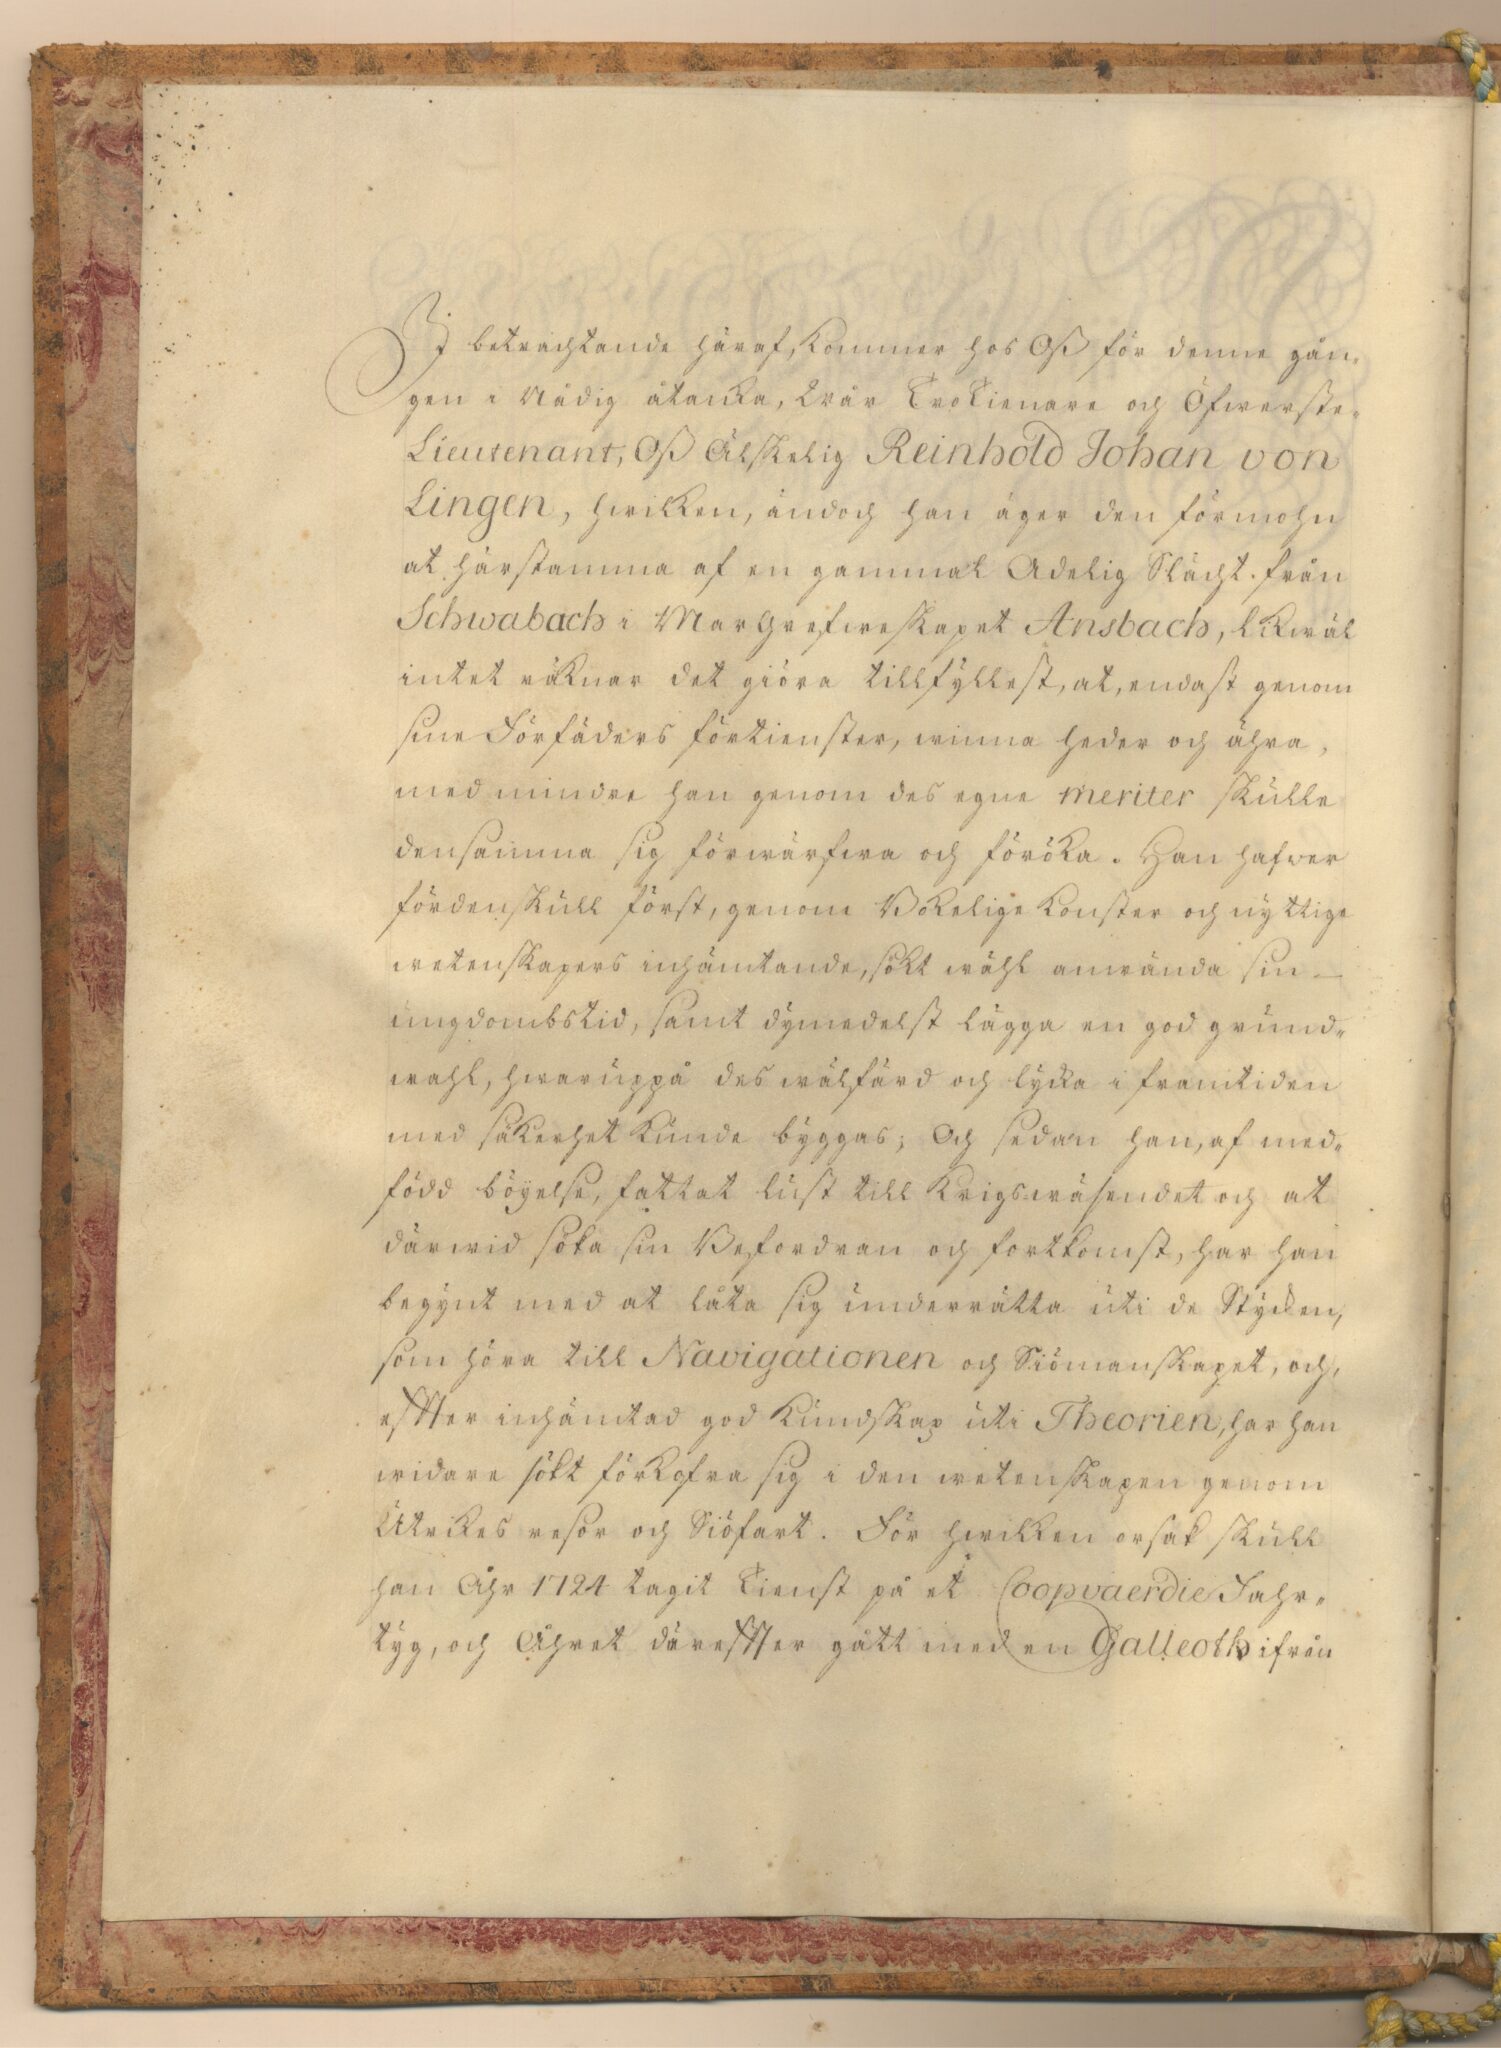 I betrachtande häraf, kommer hos Oß för denne gån-
gen i Nådig åtancka, Wår Trotienare och Öfwerste-
Lieutenant, Oß Älskelig Reinhold Johan von
Lingen, hwilken, ändoch han äger den förmohn
at härstamma af en gammal Adelig Slächt från
Schwabach i Margrefweskapet Ansbach, likwäl
intet räknar det giöra tillfyllest, at, endast genom
sine Förfäders förtienster, winna heder och ähra,
med mindre han genom des egne meriter skulle
densamma sig förwärfwa och föröka. Han hafwer
fördenskull först, genom Bokelige konster och nyttige
wetenskapers inhämtande, sökt wähl anwända sin
ungdombstid, samt dymedelst lägga en god grund-
wahl, hwaruppå des wälfärd och lycka i framtiden
med säkerhet kunde byggas; Och sedan han, af med-
född böyelse, fattat lust till Krigswäsendet och at
därwid söka sin Befordran och fortkomst, har han
begynt med at låta sig underrätta uti de Stycken,
som höra till Navigationen och Siömanskapet, och,
effter inhämtad god kundskap uti Theorien, har han
widare sökt förkofra sig i den wetenskapen genom
Utrikes resor och Siöfart. För hwilken orsak skull
han Åhr 1724 tagit tienst på et Coopvaerdie Fahr-
tyg, och Åhret däreffter gått med en Galleoth ifrån